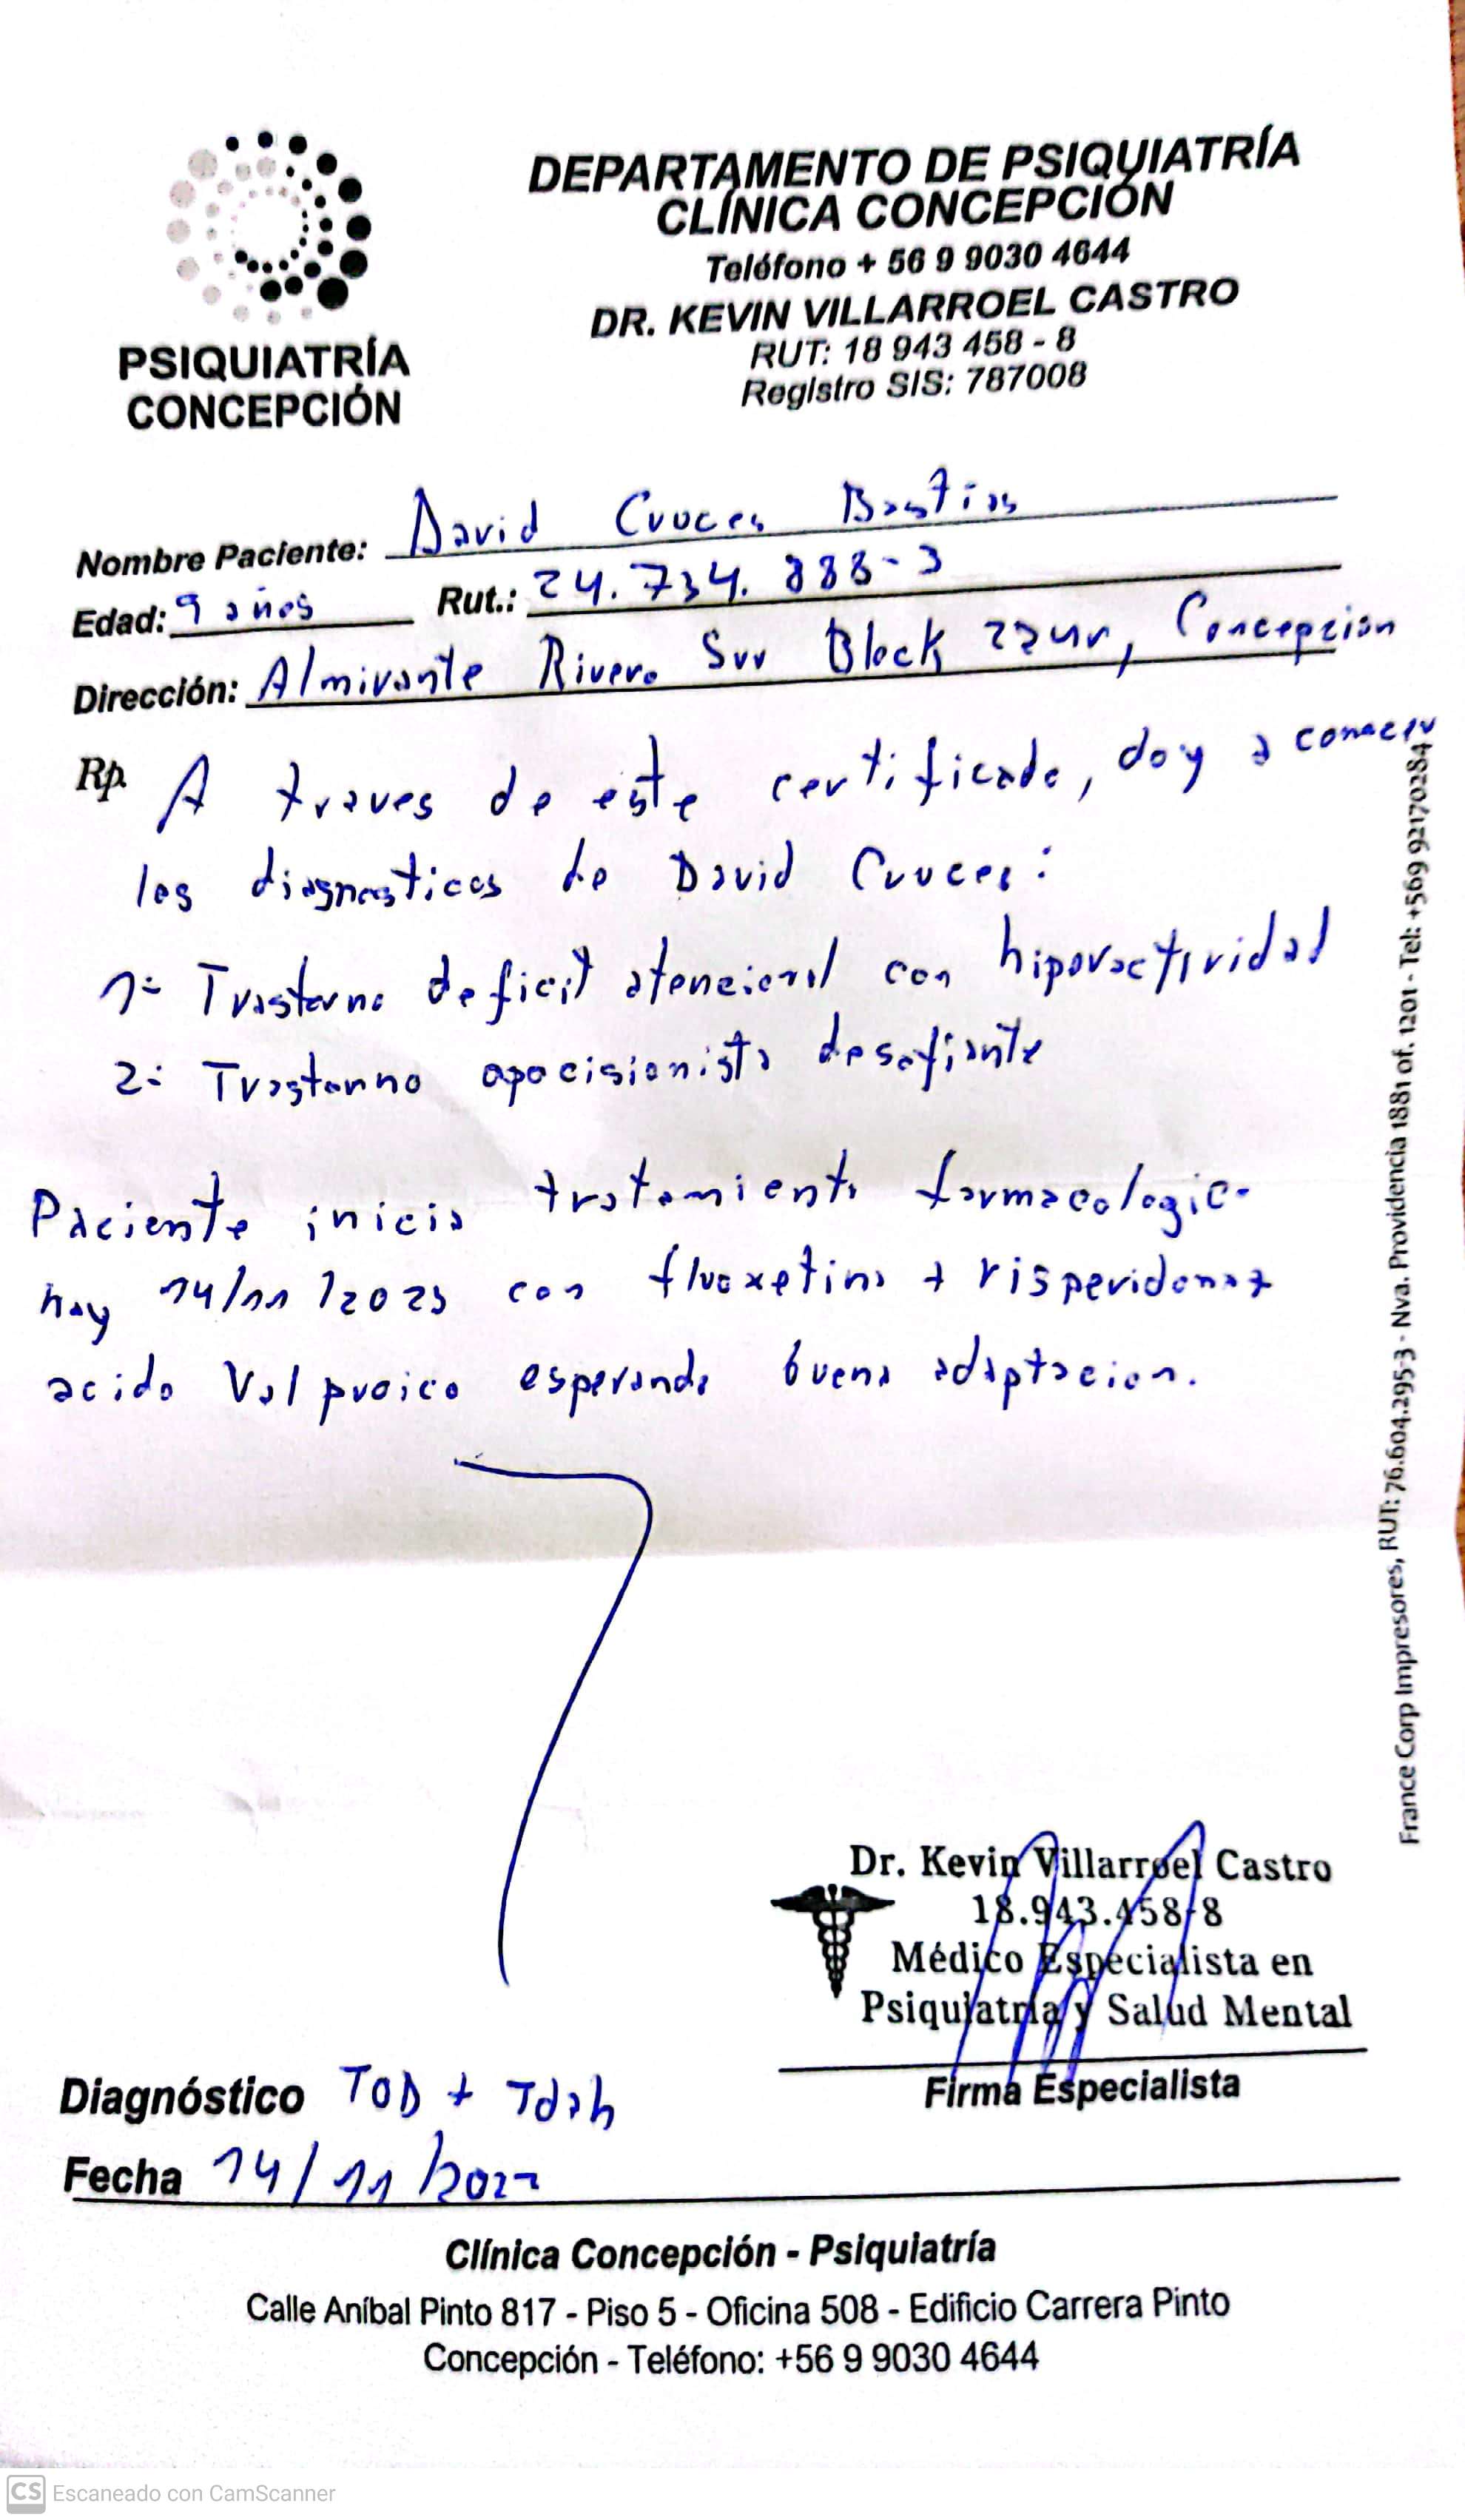 PSIQUIATRÍA
CONCEPCIÓN
DEPARTAMENTO DE PSIQUIATRÍA
CLÍNICA CONCEPCIÓN
Teléfono + 56 9 9030 4644
DR. KEVIN VILLARROEL CASTRO
RUT: 18 943 458 - 8
Registro SIS: 787008
Nombre Paciente: David Cruces Bastias
Edad: 9 años Rut.: 24.734.888-3
Dirección: Almirante Rivero Sur Block, Concepcion
Rp. A traves de este certificado, doy a conocer
los diagnosticos de David Cruces:
1- Trastorno deficit atencional con hiperactividad
2- Trastorno opocisionista desafiante
Paciente inicia tratamiento farmacologico
hoy 14/11/2023 con fluoxetina + risperidona +
acido Valproico esperando buena adaptacion.
Dr. Kevin Villarroel Castro
18.943.458-8
Médico Especialista en
Psiquiatría y Salud Mental
Firma Especialista
Diagnóstico TOD + Tdah
Fecha 14/11/
Clínica Concepción - Psiquiatría
Calle Aníbal Pinto 817 - Piso 5 - Oficina 508 - Edificio Carrera Pinto
Concepción - Teléfono: +56 9 9030 4644
France Corp Impresores, RUT: 76.604.295-3 - Nva. Providencia 1881 of. 1201 - Tel: +569 92170284
CS Escaneado con CamScanner